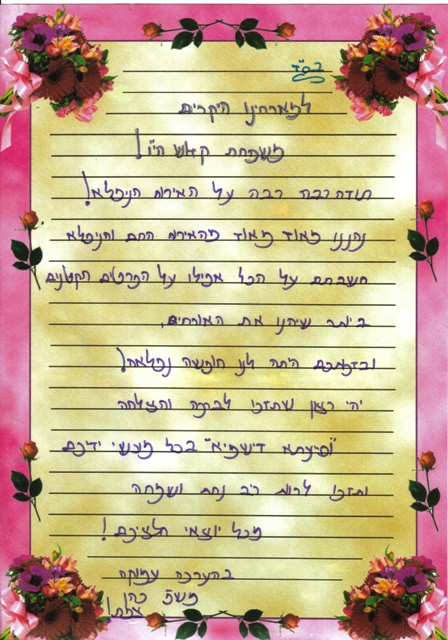 בס"ד
למארחינו היקרים
משפחת קדוש הי"ו!
תודה רבה רבה על האירוח הנפלא!
נהננו מאוד מאוד מהאירוח החם והנפלא
חשבתם על הכל אפילו על הפרטים הקטנים
ביותר שיהנו את האורחים,
ובזכותכם היתה לנו חופשה נפלאה!
יהי רצון שתזכו לברכה והצלחה
"וסיעתא דישמיא" בכל מעשי ידיכם
ותזכו לרוות רב נחת ושמחה
מכל יוצאי חלציכם!
בהערכה עמוקה
משפ' כהן